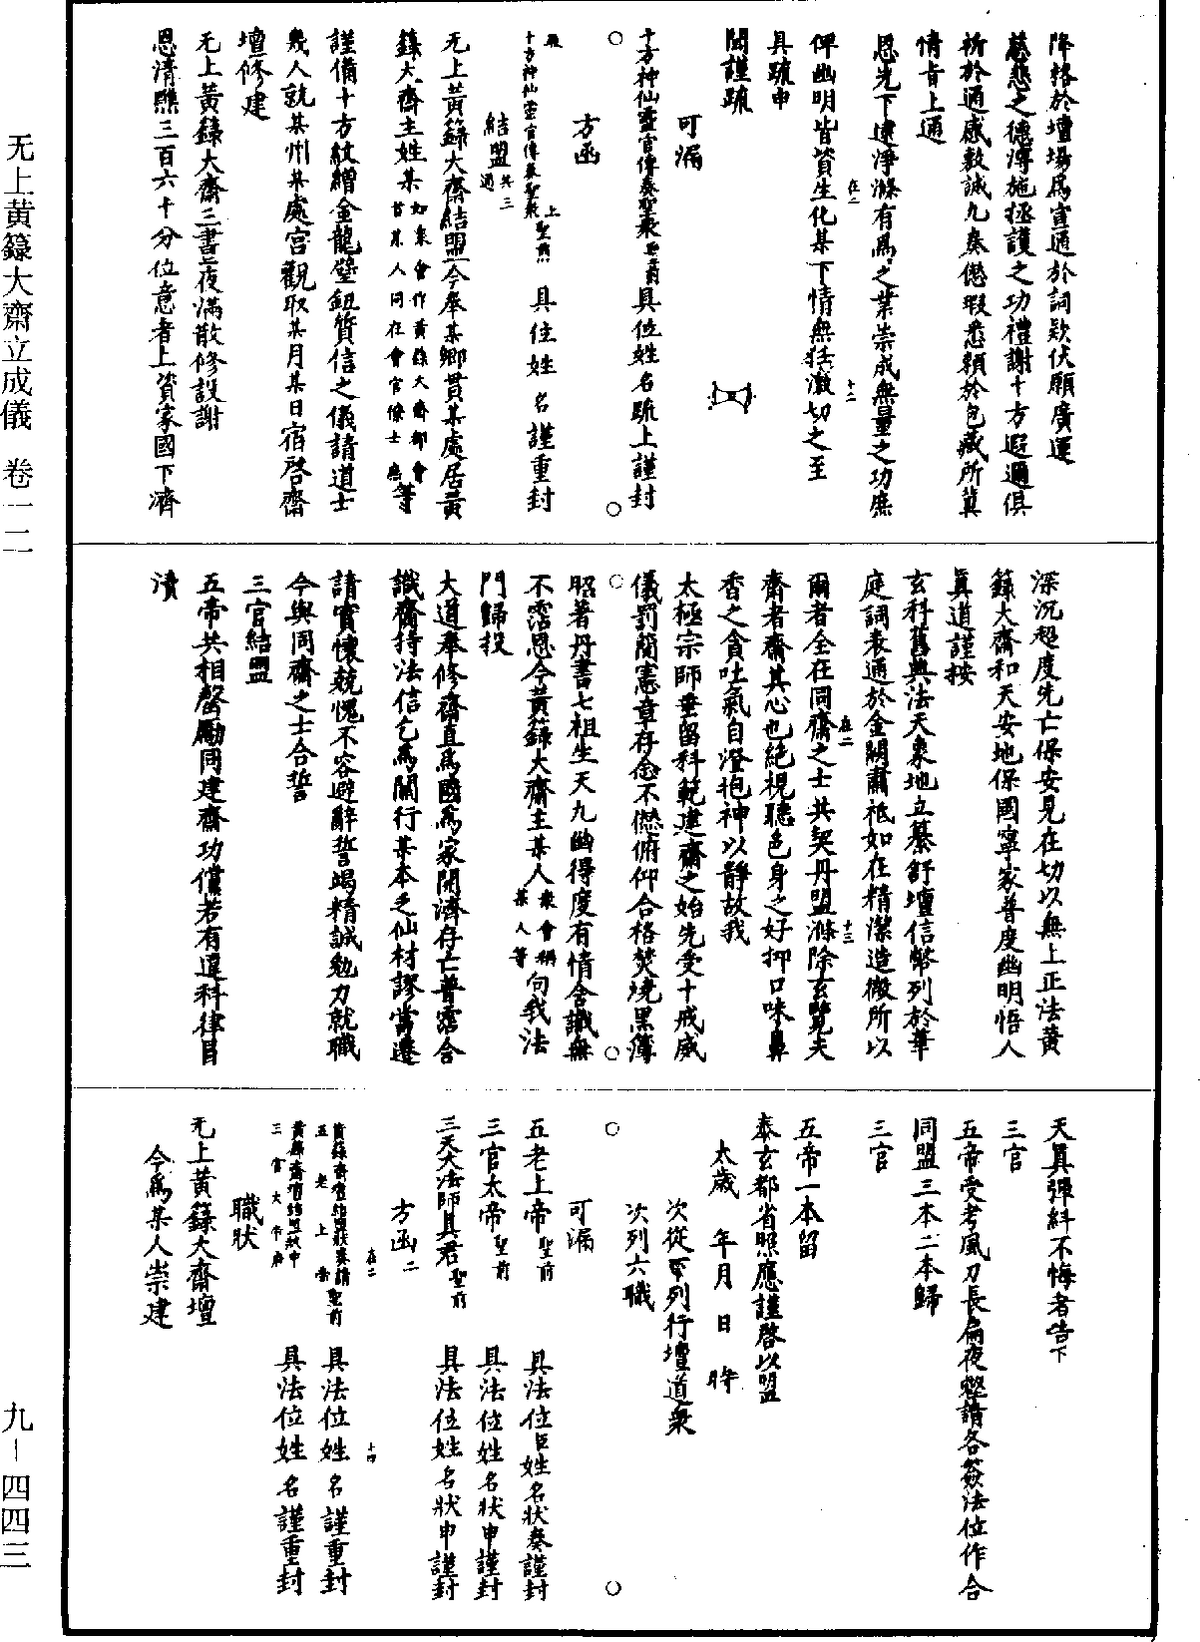 无上黃籙大齋立成儀　卷一二
降格於壇場爲宣通於詞欵伏願廣運
慈悲之德溥施拯護之功禮謝十方遐邇俱
祈於通感敷誠九奏愆瑕悉賴於包藏所冀
情旨上通
恩光下逮淨滌有爲之業崇成無量之功庶
俾幽明皆資生化某下情無任激切之至
具疏申
聞謹疏
可漏
十方神仙靈官傳奏聖衆聖前具位姓名疏上謹封
方函
十方神仙靈官傳奏聖衆聖前　具位姓　名謹重封
結盟共三通
无上黃籙大齋結盟今奉某鄉貫某處居黃
籙大齋主姓某如衆會作黃籙大齋都會首某人同在會官僚士庶等
謹備十方紋繒金龍璧鈕質信之儀請道士
幾人就某州某處宮觀取某月某日宿啓齋
壇修建
无上黃籙大齋三晝夜滿散修設謝
恩清醮三百六十分位意者上資家國下濟
深沉超度先亡保安見在切以無上正法黃
籙大齋和天安地保國寧家普度幽明悟人
眞道謹按
玄科舊典法天象地立纂舒壇信幣列於華
庭詞表通於金闕肅祗如在精潔造微所以
爾者全在同齋之士共契丹盟滌除玄覽夫
齋者齋其心也絕視聽色身之好抑口味鼻
香之貪吐氣自澄抱神以靜故我
太極宗師垂留科範建齋之始先受十戒威
儀罰簡憲章存念不僁俯仰合格焚燒黑簿
昭著丹書七祖生天九幽得度有情含識無
不霑恩今黃籙大齋主某人衆會稱某人等句我法
門歸投
大道奉修齋直爲國爲家開濟存亡普霑含
識齋持法信乞爲關行某本乏仙材謬當遷
請實懷兢愧不容避辭誓竭精誠勉力就職
今與同齋之士合誓
三官結盟
五帝共相磬勵同建齋功儻若有違科律目
瀆
天眞彈糾不悔者告下
三官
五帝受考風刀長扃夜壑請各簽法位作合
同盟三本二本歸
三官
五帝一本留
泰玄都省照應謹啓以盟
太歲　年月　日　時
次從卑列行壇道衆
次列六職
可漏
五老上帝聖前　具法位臣姓名狀奏謹封
三官太帝聖前　具法位姓名狀申謹封
三天大法師眞君聖前　具法位姓名狀申謹封
方函二
黃籙齋壇結盟狀奏請五老上帝聖前　具法位姓　名謹重封
黃籙齋壇結盟狀申三官大帝　具法位姓　名謹重封
職狀
无上黃籙大齋壇
今爲某人崇建
九—四四三